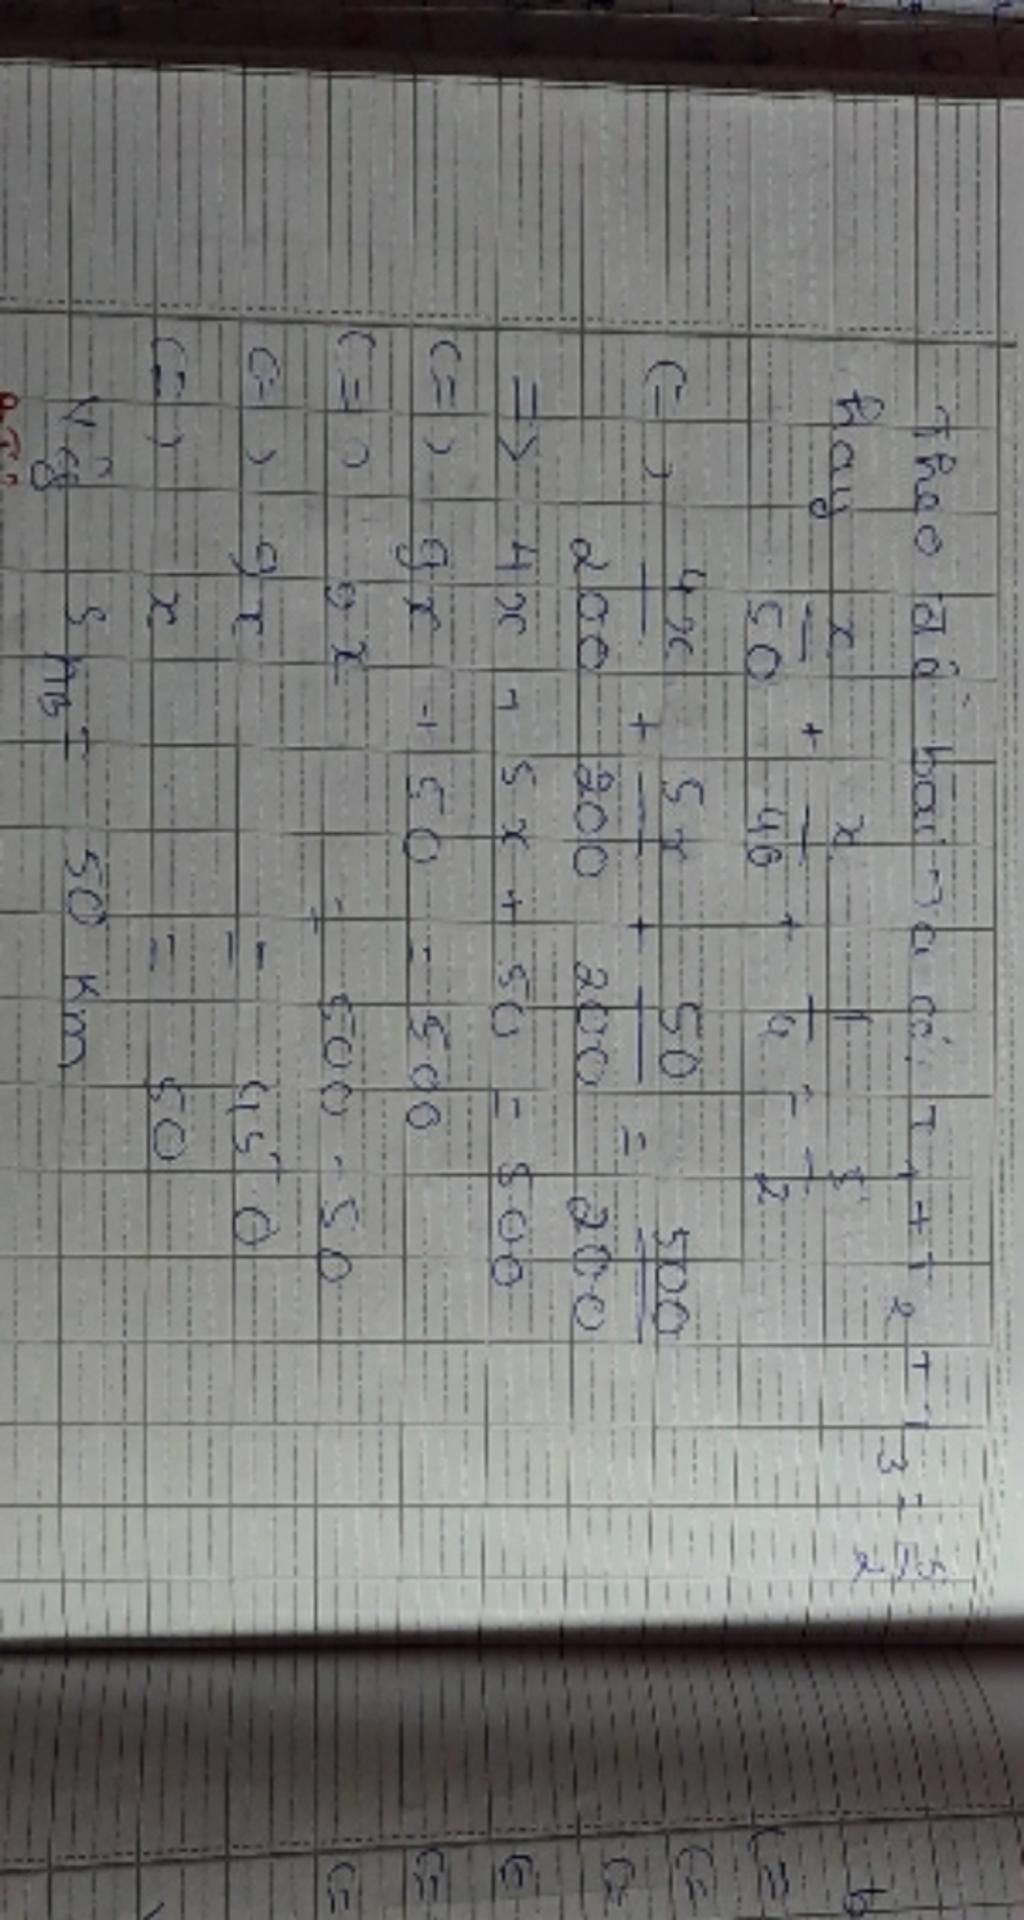 Theo đề bài ta có: T1 + T2 + T3 = 5/2
hay x/50 + x/40 + 1/4 = 5/2
<=> 4x/200 + 5x/200 + 50/200 = 500/200
=> 4x + 5x + 50 = 500
<=> 9x + 50 = 500
<=> 9x = 500 - 50
<=> 9x = 450
<=> x = 50
Vậy SAB = 50 km